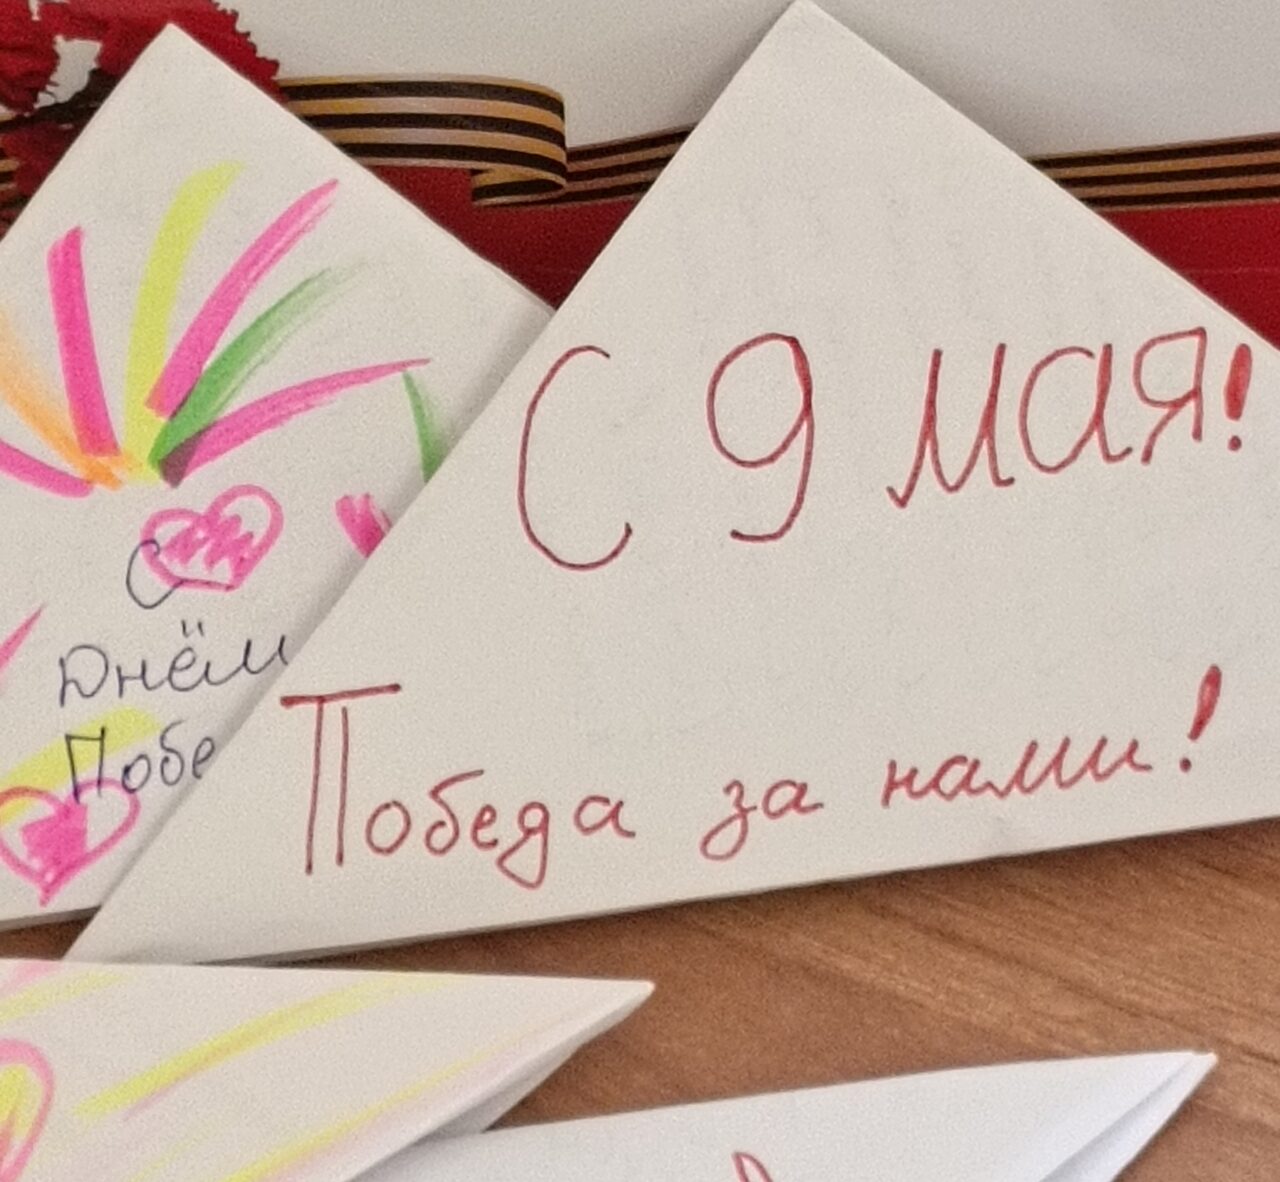 С 9 мая!
Победа за нами!
С
Днём
Побе